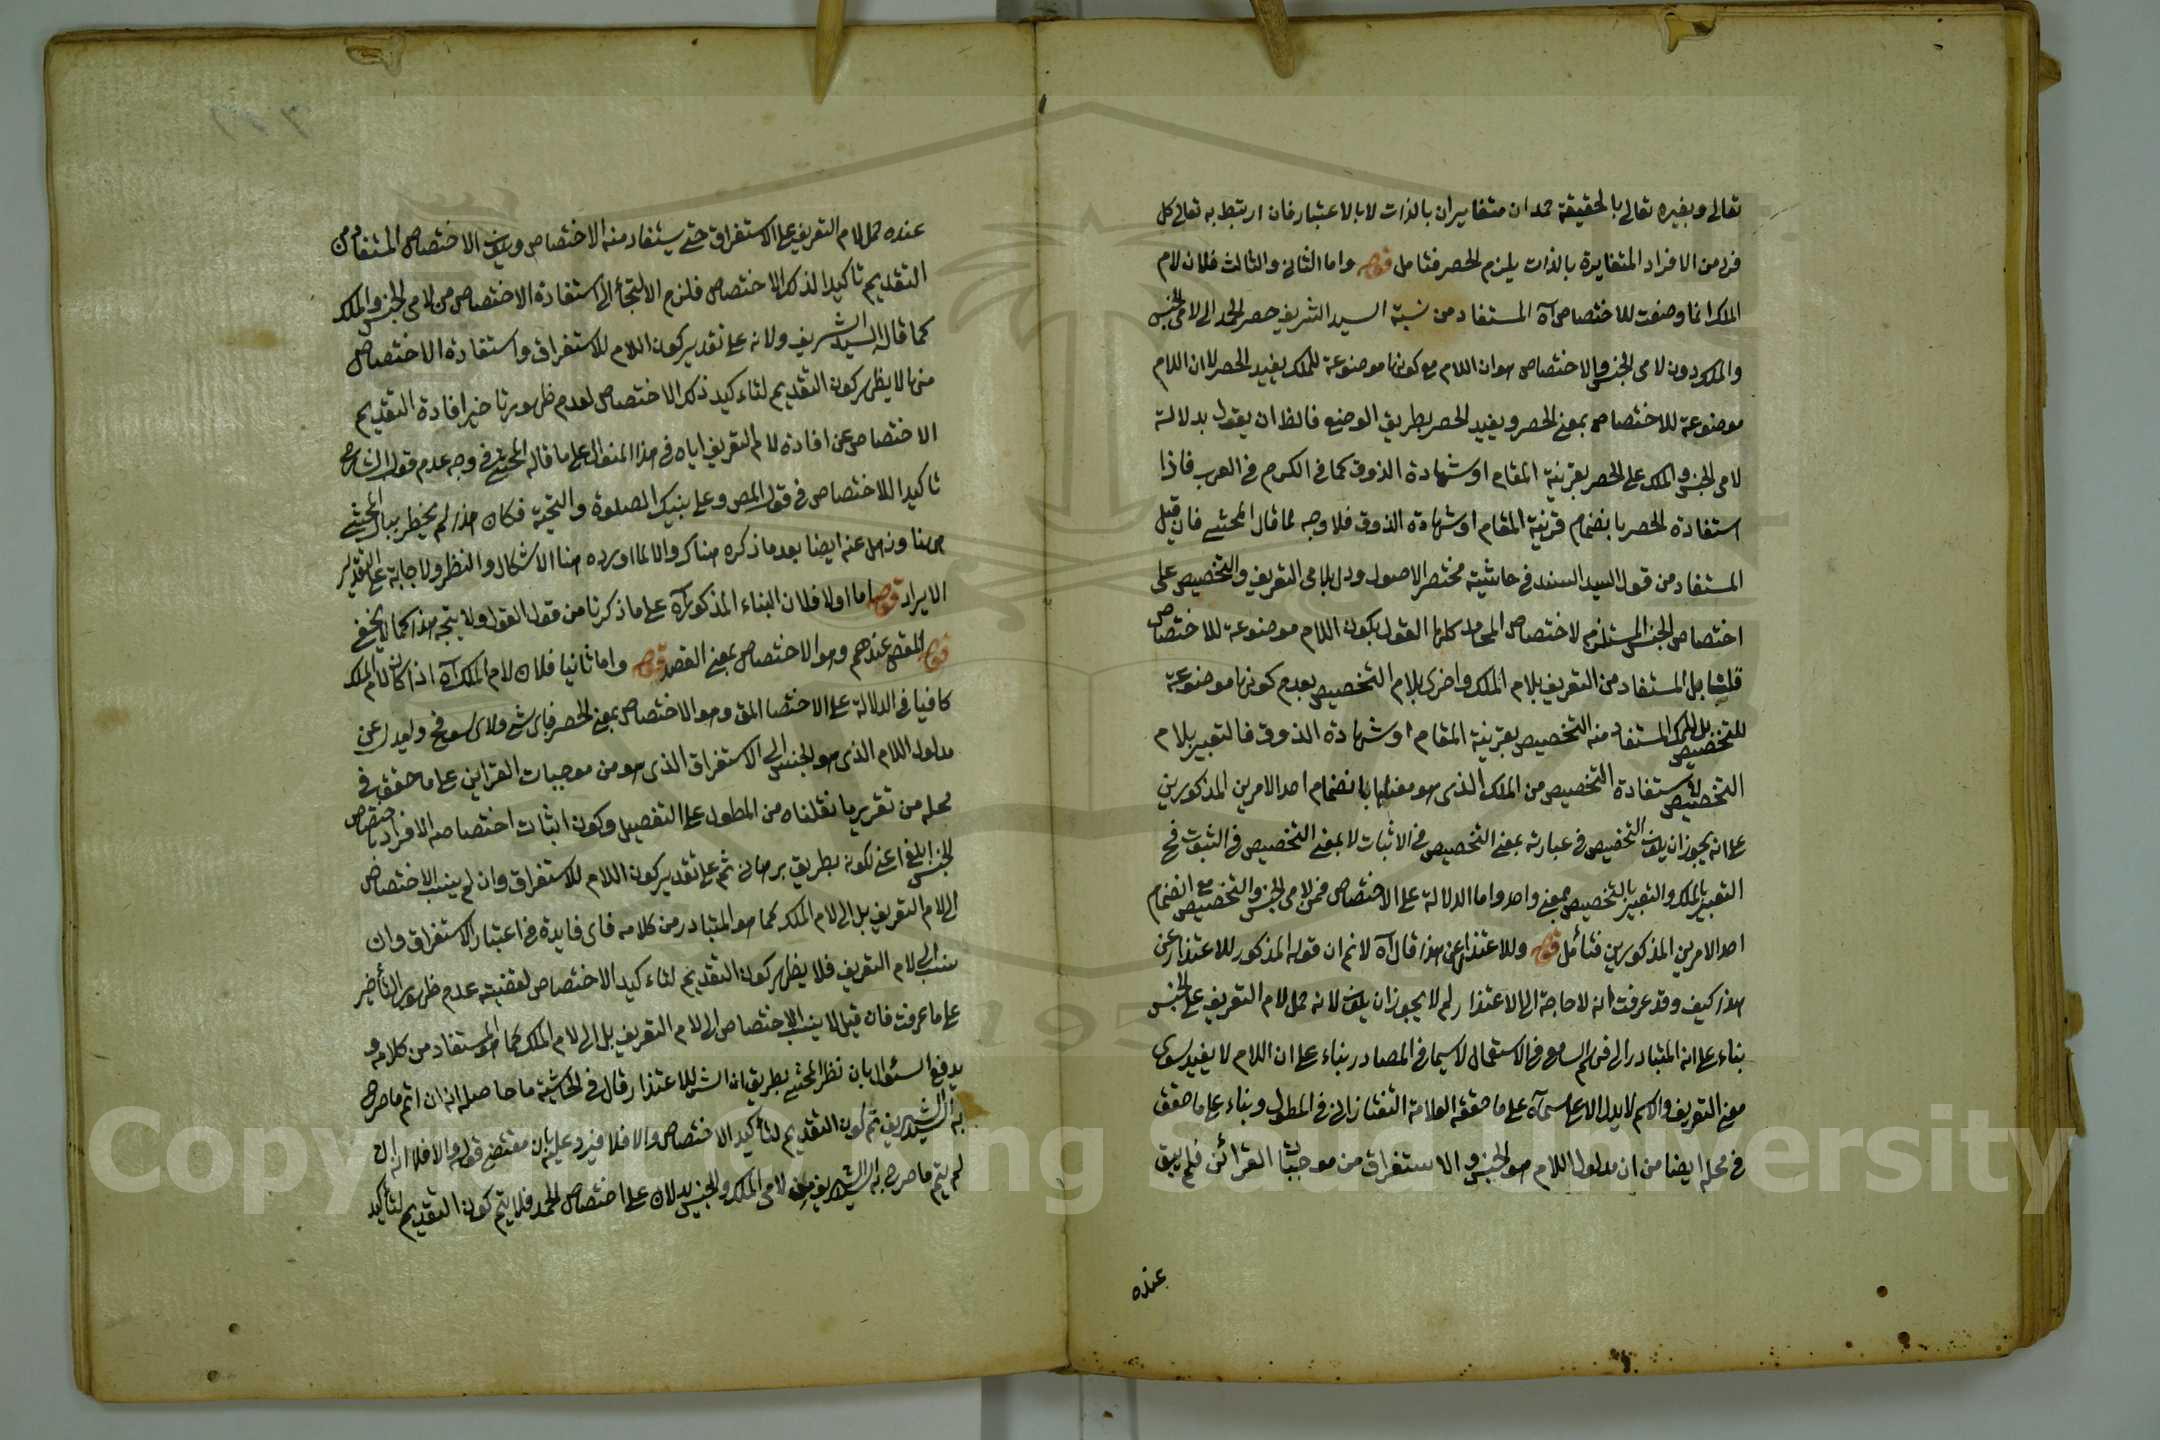 تعالى وبغيره تعالى بالحقيقة حمدان متغايران بالذات لا بالاعتبار فان ارتبط به تعالى كل
فرد من الافراد المتغايرة بالذات يلزم الحصر فتامل قوله واما الثانى والثالث فلان لام
الملك انما وضعت للاختصاص آه المستفاد من نسبة السيد الشريف حصر الحمد الى لامى الجنس
والملك دون لامى الجنس والاختصاص هو ان اللام مع كونها موضوعة للملك يفيد الحصر لا ان اللام
موضوعة للاختصاص بمعنى الحصر ويفيد الحصر بطريق الوضع فالظ ان يقول بدلالة
لامى الجنس والملك على الحصر بقرينة المقام او شهادة الذوق كما فى الكرم فى العرب فاذا
استفادة الحصر بانضمام قرينة المقام او شهادة الذوق فلا وجه لما قال المحشى فان قيل
المستفاد من قول السيد السند فى حاشية مختصر الاصول ودل بلامى التعريف والتخصيص على
اختصاص الجنس المستلزم لاختصاص المحامد كلها القول بكون اللام موضوعة للاختصاص
قلنا بل المستفاد من التعريف بلام الملك واخرى بلام التخصيص بعدم كونها موضوعة
للتخصيص بل للملك المستفاد منه التخصيص بقرينة المقام او شهادة الذوق فالتعبير بلام
التخصيص لاستفادة التخصيص من الملك الذى هو معناها بانضمام احد الامرين المذكورين
على انه يجوز ان يكون التخصيص فى عبارته بمعنى التخصيص فى الاثبات لا بمعنى التخصيص فى الثبوت فح
التعبير بالملك والتعبير بالتخصيص بمعنى واحد واما الدلالة على الاختصاص فمن لامى الجنس والتخصيص مع انضمام
احد الامرين المذكورين فتأمل قوله وللاعتذار عن هذا قال آه لانم ان قوله المذكور للاعتذار عن
هذا كيف وقد عرفت انه لا حاجة الى الاعتذار لم لا يجوز ان يكون لانه حمل لام التعريف على الجنس
بناء على انه المتبادر الى فهم السامع فى الاستعمال لا سيما فى المصادر بناء على ان اللام لا يفيد سوى
معنى التعريف والاسم لا يدل الا على مسماه على ما حققه العلامة التفتازانى فى المطول وبناء على ما حقق
فى محله ايضا من ان مدلول اللام هو الجنس والاستغراق من موجبات القرائن فلم يبق
عنده
عنده حمل لام التعريف على الاستغراق حتى يستفاد منه الاختصاص ويكون الاختصاص المستفاد من
التقديم تاكيدا لذلك الاختصاص فلزم الالتجأ الى استفادة الاختصاص من لامى الجنس والملك
كما قاله السيد الشريف ولانه على تقدير كون اللام للاستغراق واستفادة الاختصاص
منها لا يظهر كون التقديم لتاءكيد ذلك الاختصاص لعدم ظهور تاخير افادة التقديم
الاختصاص عن افادة لام التعريف اياه فى هذا المنوال على ما قاله المحشى فى وجه عدم قول الشارح
تاكيدا للاختصاص فى قول المص وعلى نبيك الصلوة والتحية فكان هذا لم يخطر ببال المحشى
ههنا وذهل عنه ايضا بعد ما ذكره هناك والا لما اورده هنا الاشكال والنظر ولا جابة على التقدير
الايراد قوله اما اولا فلان البناء المذكور آه على ما ذكرنا من قول القول ولا يتجه هذا كما لا يخفى
قوله المقص عندهم وهو الاختصاص بمعنى القصد قوله واما ثانيا فلان لام الملك آه اذا كان لام الملك
كافيا فى الدلالة على الاختصا المق وهو الاختصاص بمعنى الحصر فباى شئ ولاى مسوغ ح ويعدل عن
مدلول اللام الذى هو الجنس الى الاستغراق الذى هو من موجبات القراين على ما حقق فى
محله من تقرير ما نقلناه من المطول على التفصيل وكون اثبات اختصاص الافراد باختصاص
الجنس ابلغ اعنى لكونه بطريق برهانى ثم على تقدير كون اللام للاستغراق وان لم ينسب الاختصاص
الى لام التعريف بل الى لام الملك كما هو المتبادر من كلامه فاى فايدة فى اعتبار الاستغراق وان
ينسب الى لام التعريف فلا يظهر كون التقديم لتاءكيد الاختصاص لقضية عدم ظهور التأخير
على ما عرفت فان قيل لا ينسب الاختصاص الى لام التعريف بل الى لام الملك كما هو المستفاد من كلامه و
يدفع السئوال بان نظر المحشى بطريق ان الش للاعتذار قال فى الحاشية ما حاصله انه ان اتم ما صرح
به السيد الشريف تم كون التقديم لتأكيد الاختصاص والا فلا فيرد عليه بان مقتضى قوله والا فلا انه ان
لم يتم ما صرح به السيد الشريف من لامى الملك والجنس يدلان على اختصاص الحمد فلا يتم كون التقديم لتأكيد